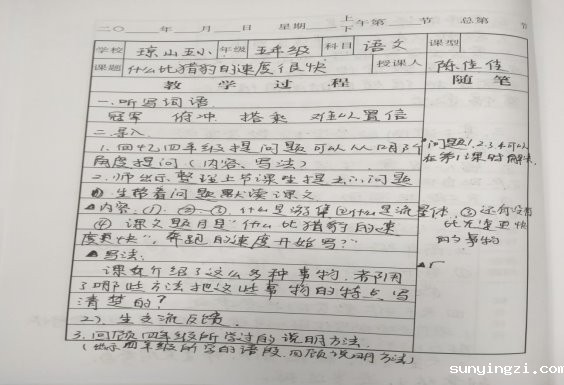 二〇 年 月 日 星期 上 午 第 节 总第 节
下
学校 琼山五小 年级 五年级 科目 语文 课型
课题 什么比猎豹的速度很快 授课人 陈佳佳
教 学 过 程 随 笔
一.听写词语
冠军 俯冲 搭乘 难以置信
二.导入
1.回忆四年级提问题可以从哪些 问题1.2.3.4可以
角度提问(内容、写法) 在第1课时解决
2.师出示整理上节课生提出的问题
生带着问题默读课文
▲内容:①. ②. ③. 什么是游隼②什么是流星体. ③还有没有
④ 课文题目是"什么比猎豹的速 比光速更快
度更快",奔跑的速度开始写?" 的事物
▲写法:
课文介绍了这么多种事物.者用
了哪些方法把这些事物的特点写
清楚的?
2). 生交流反馈.
3.回顾四年级所学过的说明方法.
(出示四年级所写的语段.回顾说明方法)
sunyingzi.com